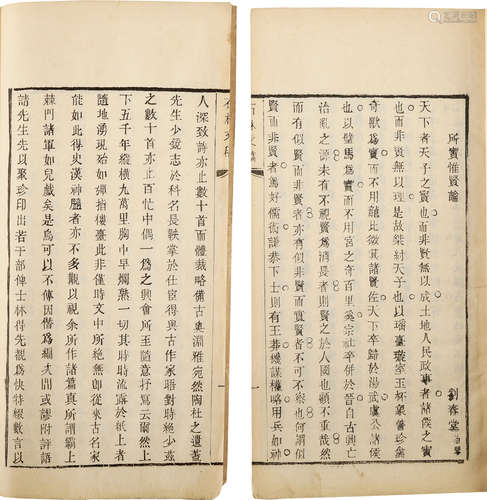 所寶惟賢論
劉春堂
天下者天子之寶也而非賢無以成土地人民政事者諸侯之寶
也而非賢無以理是故桀紂天子也以瑤臺璇室玉杯象箸珍禽
奇獸爲寶而不用龍比微箕諸賢佐天下卒歸於湯武虞公諸侯
也以璧馬爲寶而不用宮之奇百里奚宗社卒併於晉自古興亡
治亂之源未有不視賢爲消長者則賢之於人國也顧不重哉然
有似賢而非賢者亦有似非賢而實賢者不可不察也何如謂似
賢而非賢者爲好儒術謙恭下士則有王莽機謀權略用兵如
人深致詩亦止數十首而體裁略備古奥淵雅宛然陶杜之遺蓋
先生少銳志於科名長鞅掌於仕宦得與古作家晤對時絶少茲
之數十首亦止百忙中偶一爲之興會所至隨意抒寫云爾然上
下五千年縱橫九萬里胸中早爛熟一切其時時流露於紙上者
隨地湧現如彈指樓臺此非僅時文中所絶無卽從來古名家
能如此得史漢神髓者亦不多觀以視余所作諸篇真所謂霸上
棘門諸軍如兒戲矣是烏可以不傳因慫爲編次間或謬附評語
請先生先以聚珍印出若干部俾士林得先覩爲快特綴數言以